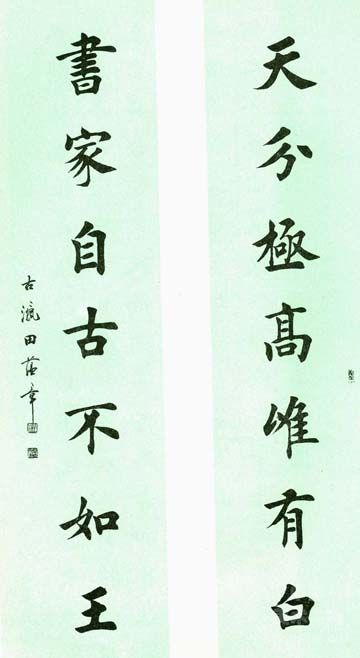 天分極高唯有白
書家自古不如王
古滬田蓝章